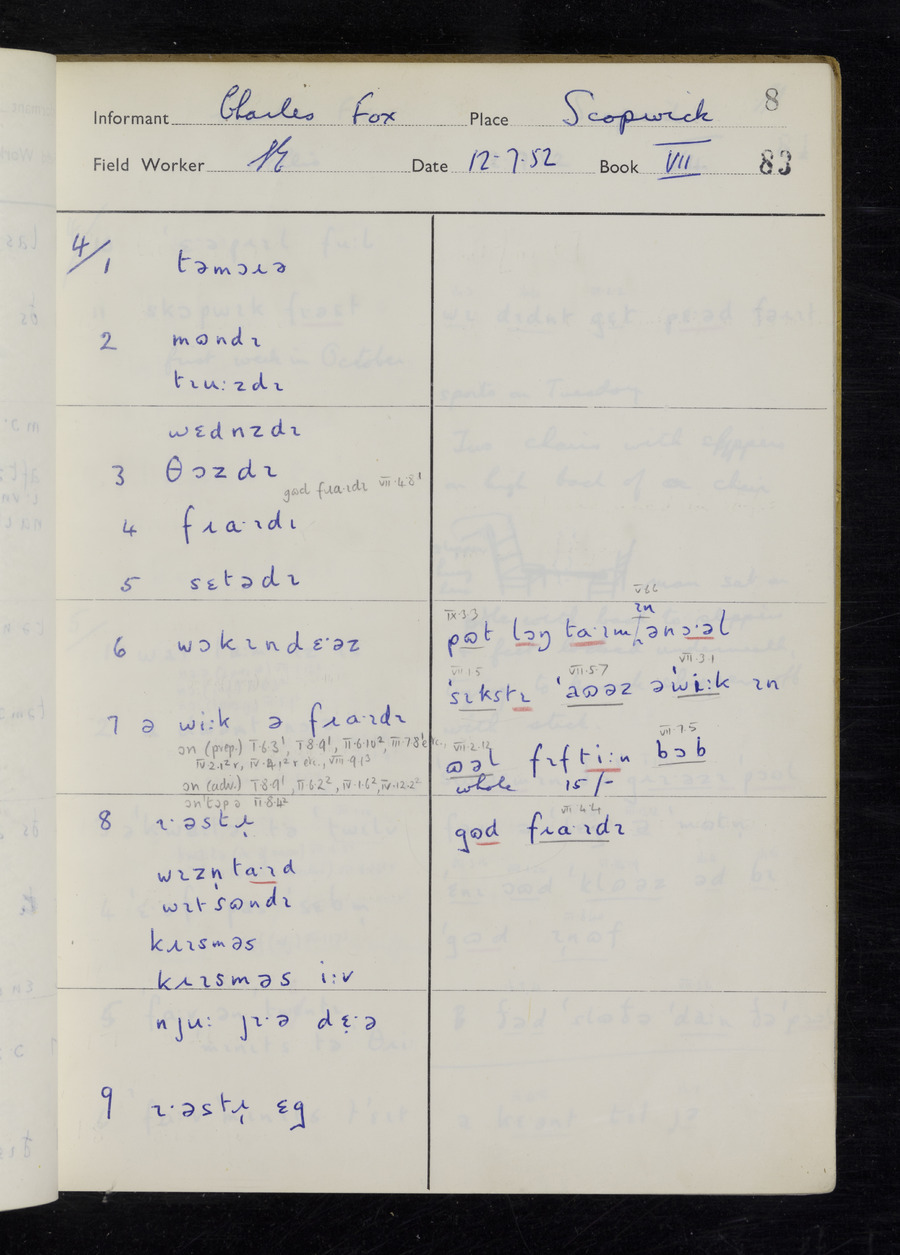 8
Informant Charles Fox Place Scopwick
Field Worker Date 12-7-52 Book VII 83
4/1 təmɔɹə
2 mɷndɪ
tɹu:zdɪ
wɛdnzdɪ
3 θɔzdɪ
gɷd fɹa·ɪdɪ VII·4·8¹
4 fɹa·ɪdɪ
5 sɛtədɪ
6 wɔkɪndɛ·əz
7 ə wi:k ə fɹa·ɪdɪ
ɔn (prep.) I·6·3¹, I·8·9¹, II·6·10², III·7·8¹ etc.,
IV·2·1²r, IV·4·1²r etc., VIII·9·13
ɔn (adv.) I·8·9¹, II·6·2², IV·1·6², IV·12·2²
ɔn'tɔpə II·8·4²
8 ɪ·əstɪ̣
wɪzṇta·ɪd
wɪtsɷndɪ
kɹɪsməs
kɹɪsməs i:v
nju: jɪ·ə dɛ̣·ə
9 ɪ·əstɪ̣ ɛg
IX·3·3 VI·6·6
ɪn
pɷt lɔŋ ta·ɪm ənɔ·əl
VII·1·5 VII·5·7 VII·3·1
'sɪkstɪ 'aɷəz ə'wi:k ɪn
VII·2·12 VII·7·5
ɷəl fɪfti:n bɔb
whole 15/-
VII·4·4
gɷd fɹa·ɪdɪ